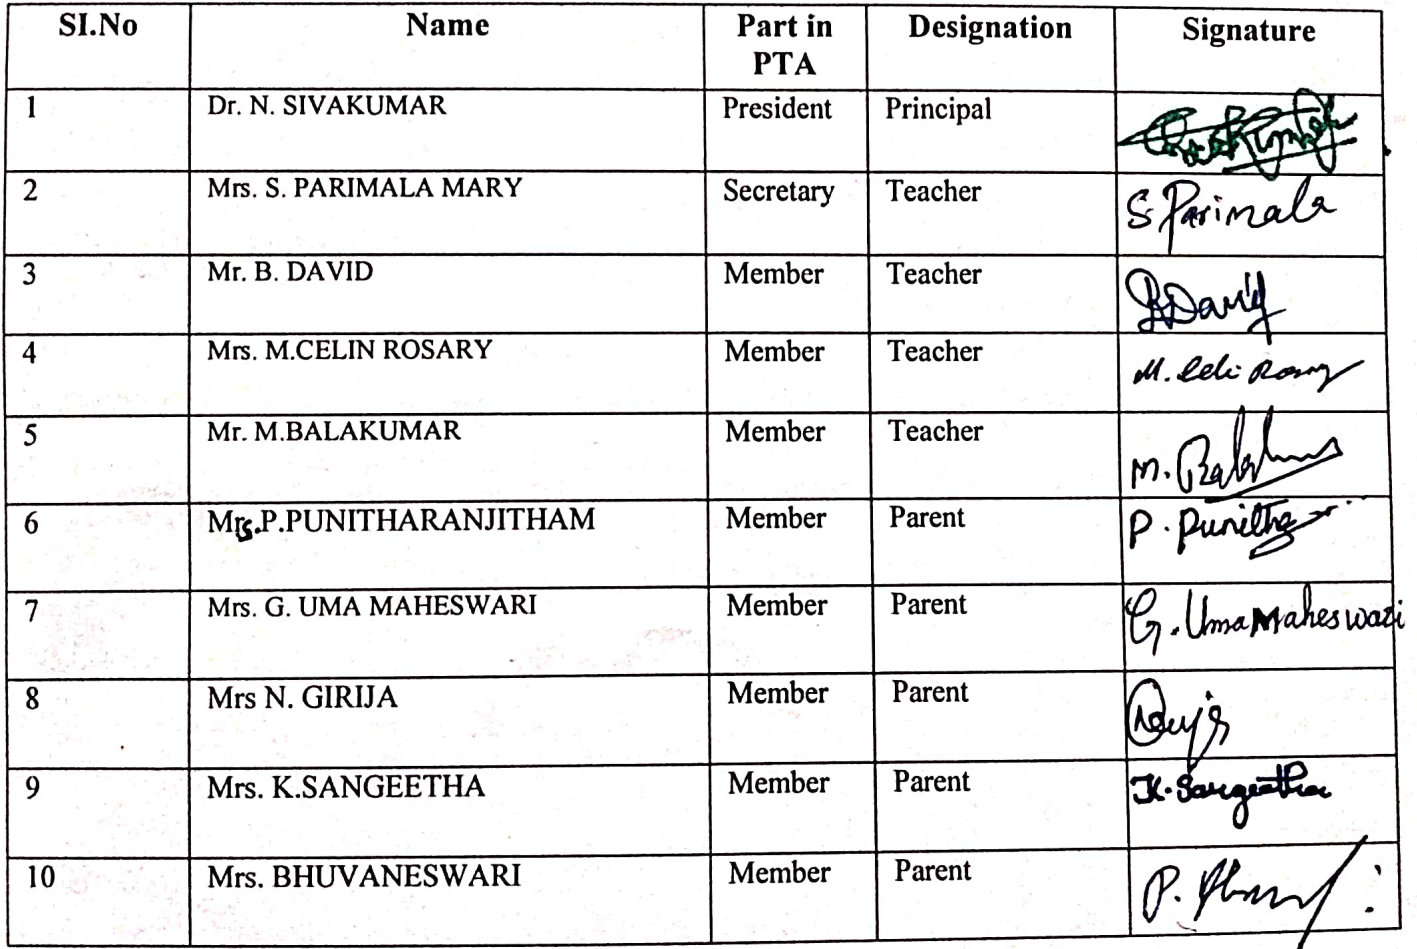 SI.No Name Part in PTA Designation Signature
1 Dr. N. SIVAKUMAR President Principal
2 Mrs. S. PARIMALA MARY Secretary Teacher S. Parimala
3 Mr. B. DAVID Member Teacher B David
4 Mrs. M.CELIN ROSARY Member Teacher M. Celi Rosary
5 Mr. M.BALAKUMAR Member Teacher M.
6 Mrs.P.PUNITHARANJITHAM Member Parent P. Punitha
7 Mrs. G. UMA MAHESWARI Member Parent G. Uma Maheswari
8 Mrs N. GIRIJA Member Parent
9 Mrs. K.SANGEETHA Member Parent K. Sangeetha
10 Mrs. BHUVANESWARI Member Parent P.